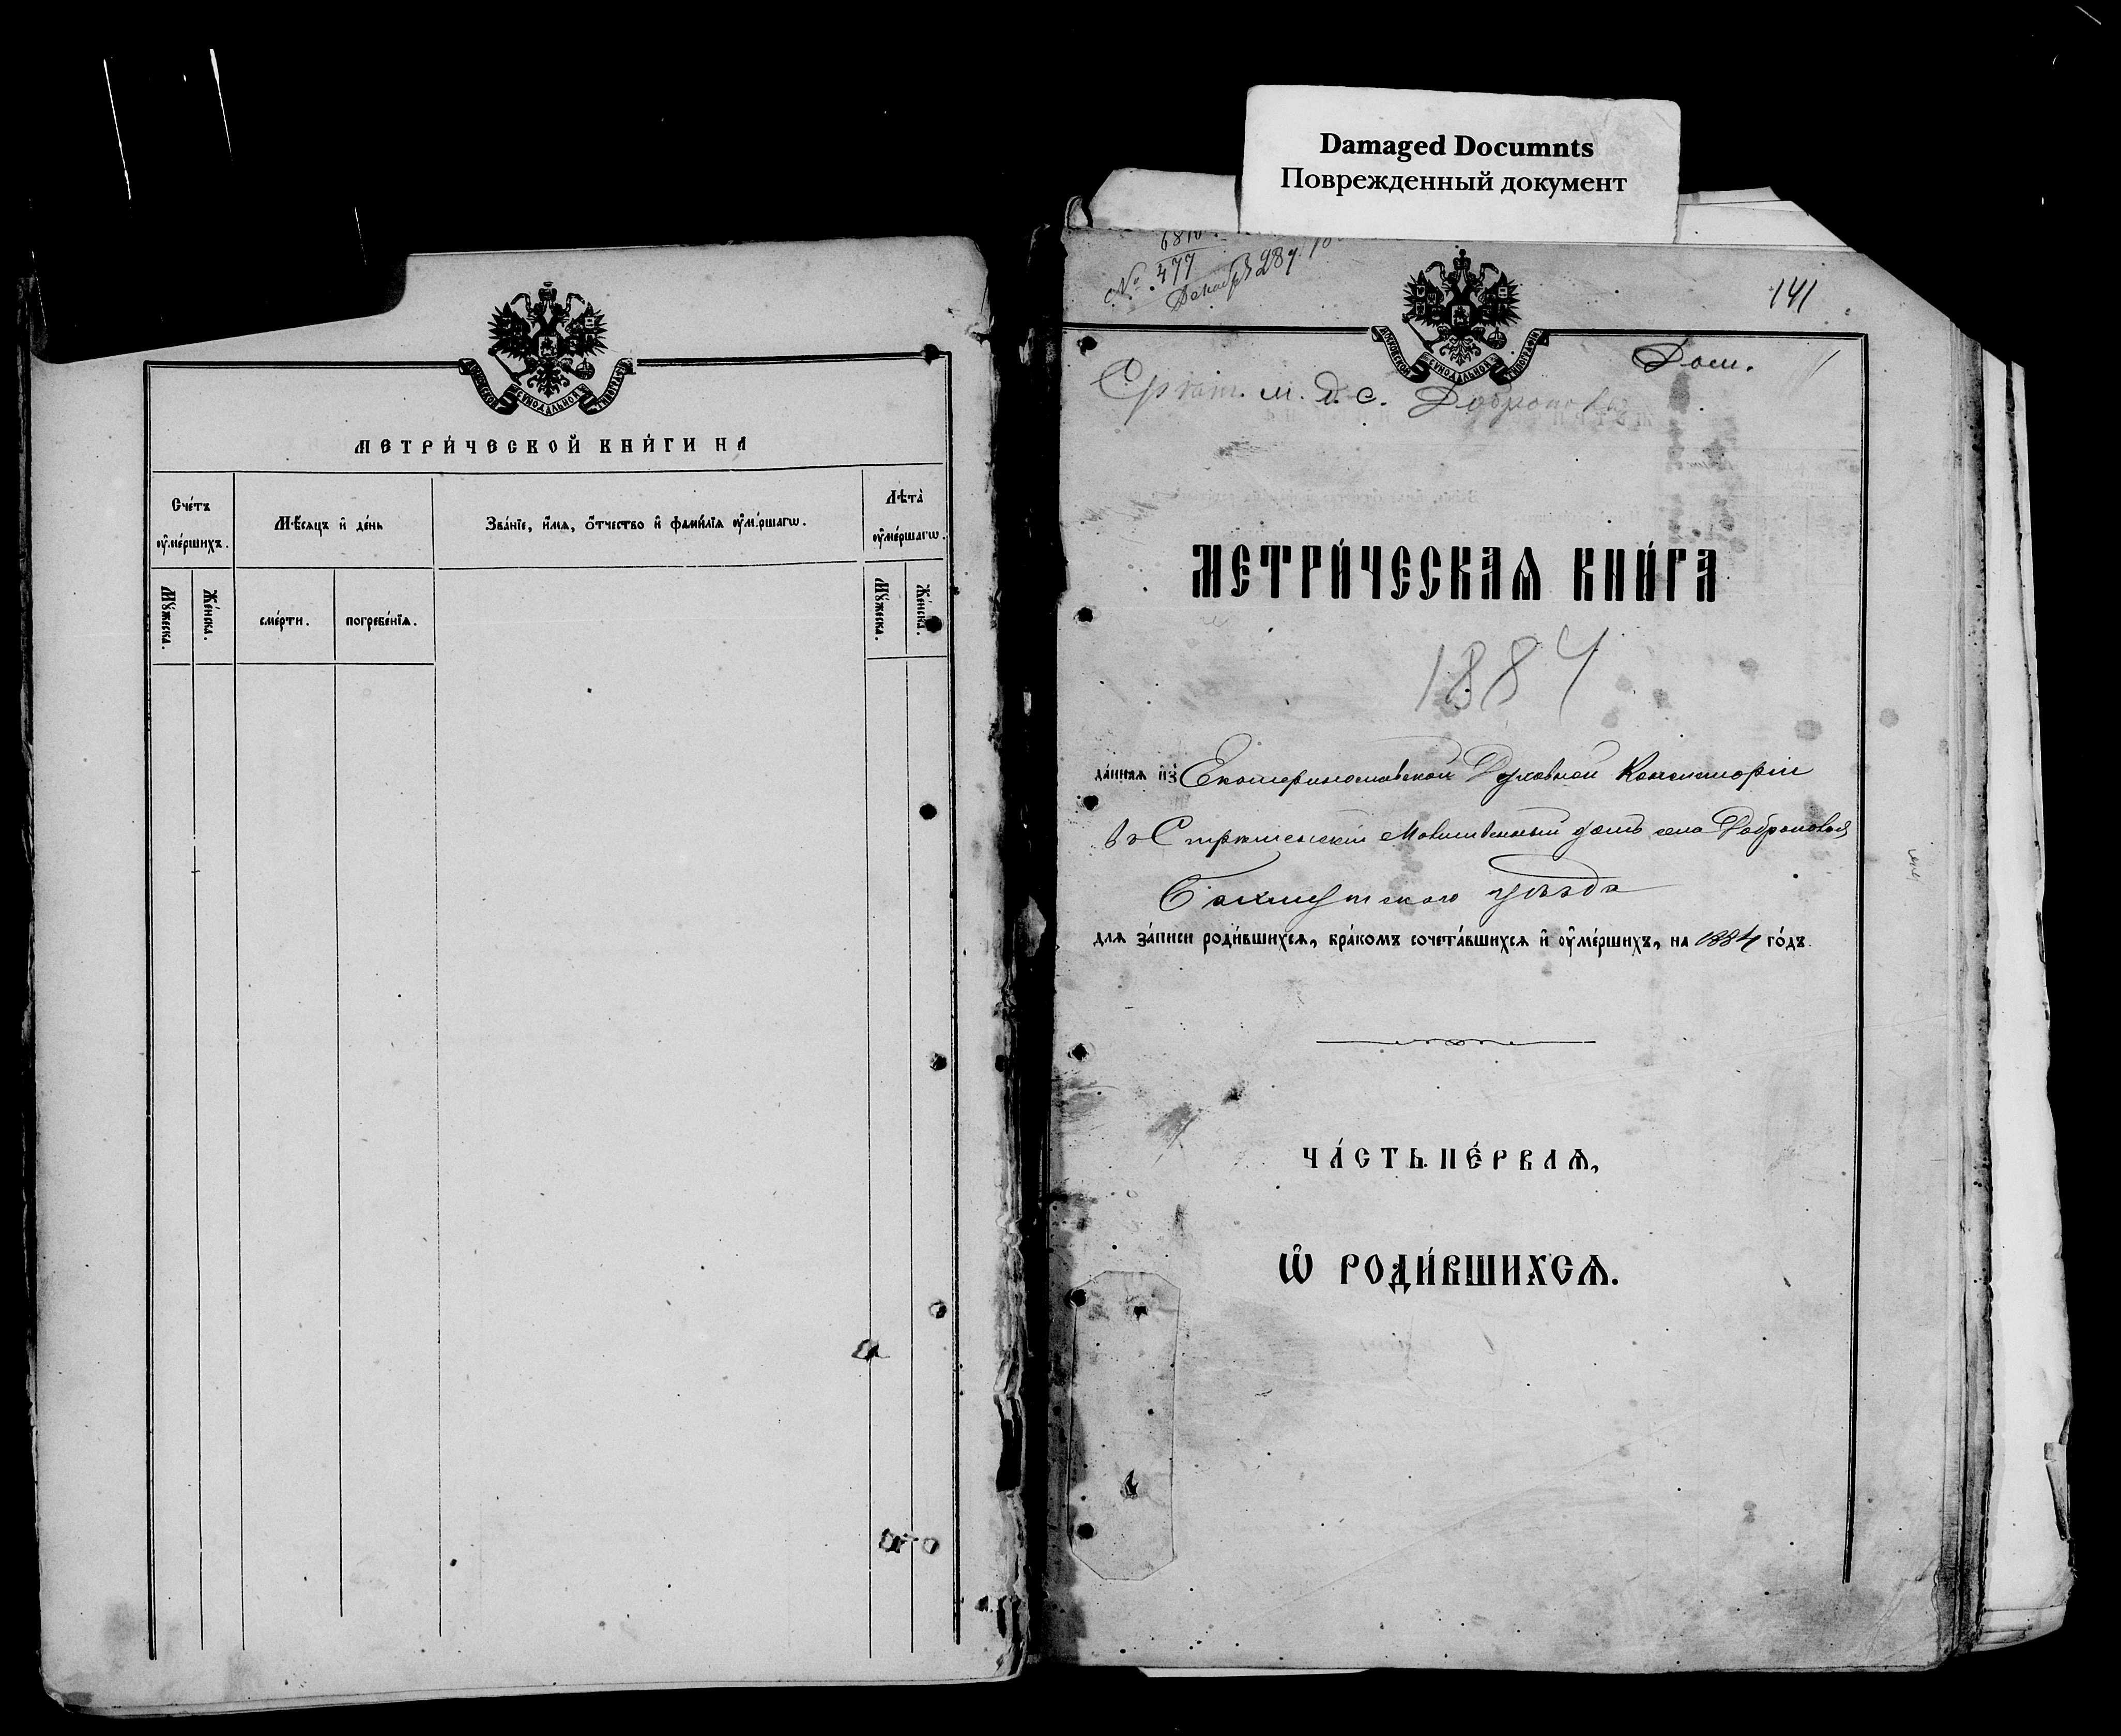 Damaged Documnts
Поврежденный документ
МЕТРИ́ЧЕСКОЙ КНИ́ГИ НА
Сче́тъ ᲂу҆ме́ршихъ.
Мѣ́сяцъ и҆ де́нь
Зва́нїе, и҆́мя, ѻ҆́тчество и҆ фами́лїя ᲂу҆ме́ршагѡ.
Лѣта̀ ᲂу҆ме́ршагѡ.
Мꙋ́жеска.
Же́нска.
сме́рти.
погребе́нїя.
Мꙋ́жеска.
Же́нска.
№ 477
141
Дом.
Срѣт. м. д. с. Доброполья
МЕТРИ́ЧЕСКАѦ КНИ́ГА
1884
да́нная и҆з̾ Екатеринославской Духовной Консисторіи
въ Стрѣтенскій Молитвенный домъ села Доброполья
Бахмутскаго уѣзда
для за́писи роди́вшихся, бра́комъ сочета́вшихся и҆ ᲂу҆ме́ршихъ, на 1884 го́дъ.
ЧА́СТЬ ПЕ́РВАѦ,
Ѡ҆ РОДИ́ВШИХСѦ.